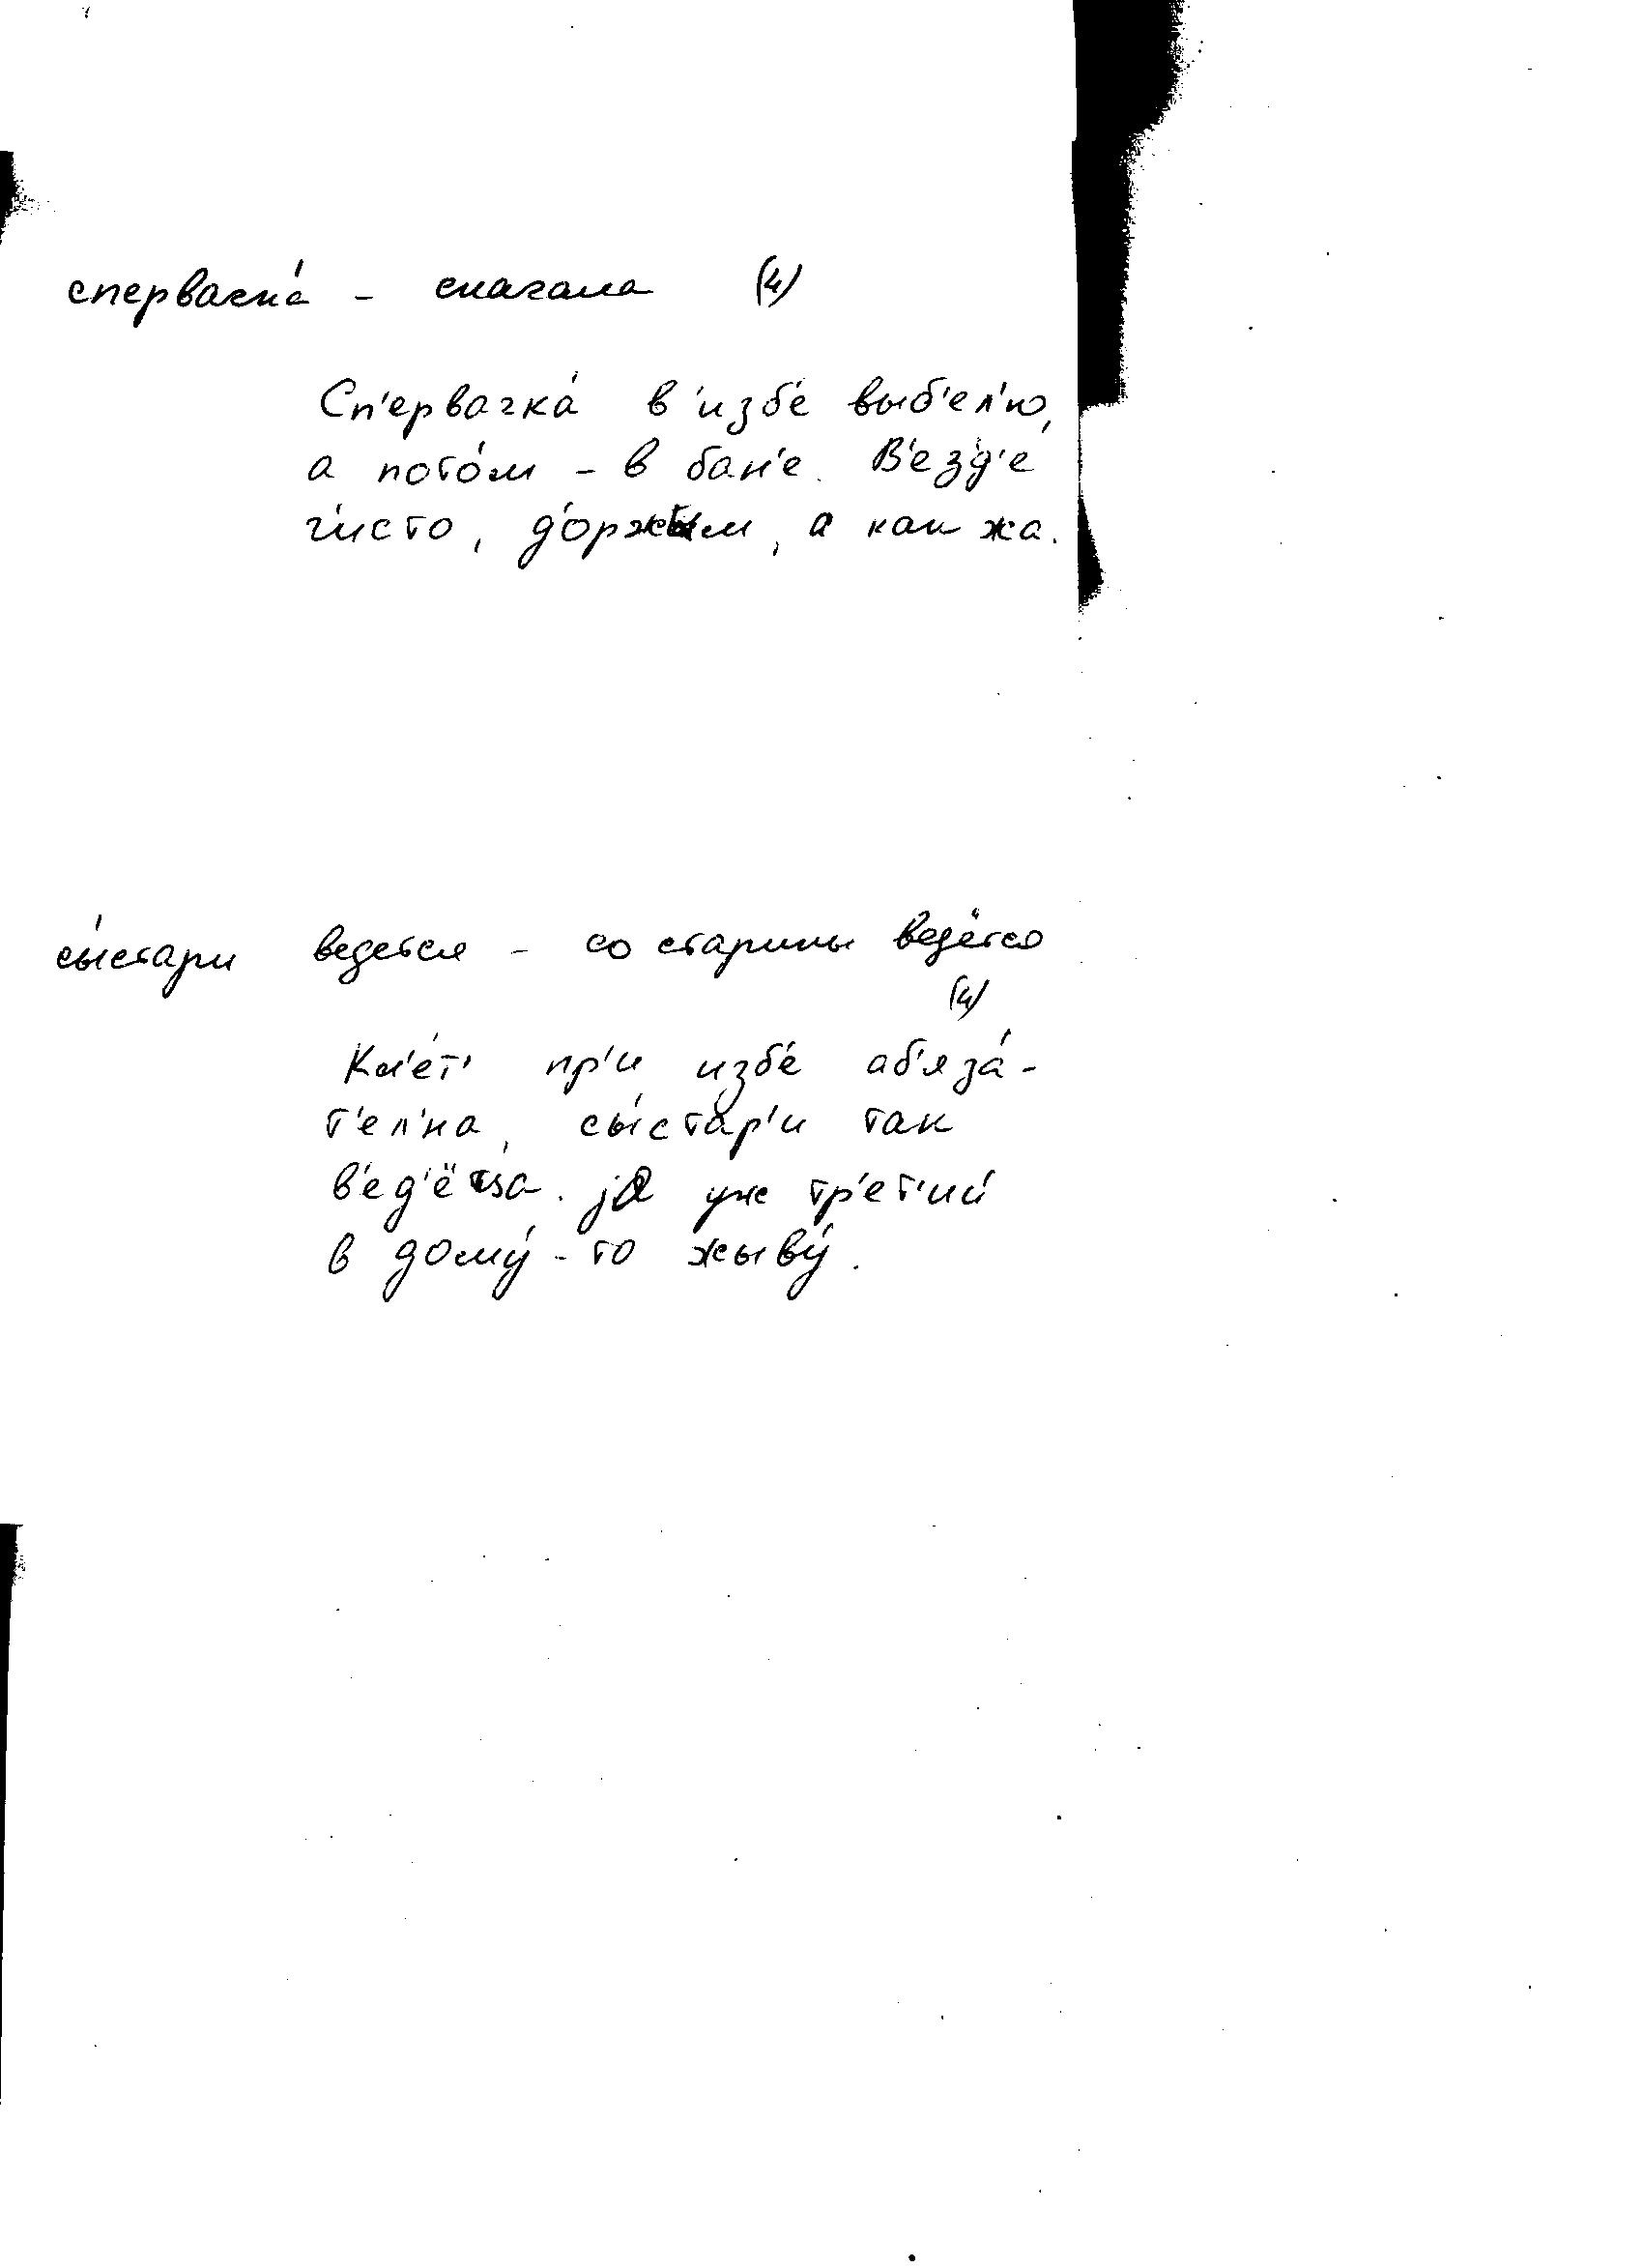 спервачка́ – сначала (4)
Сп'ервачка́ в'изб'е́ выб'ел'ю,
а пото́м – в бан'е. В'езд'е́
ч'и́сто, д'о́ржым, а как жа.
сы́стари ведется – со старины ведётся
(4)
Кл'е́т' пр'и изб'е́ аб'яза́-
т'ел'на, сы́стар'и так
в'ед'ёцца. jа уж тр'е́т'ий
в дому́-то жыву́.